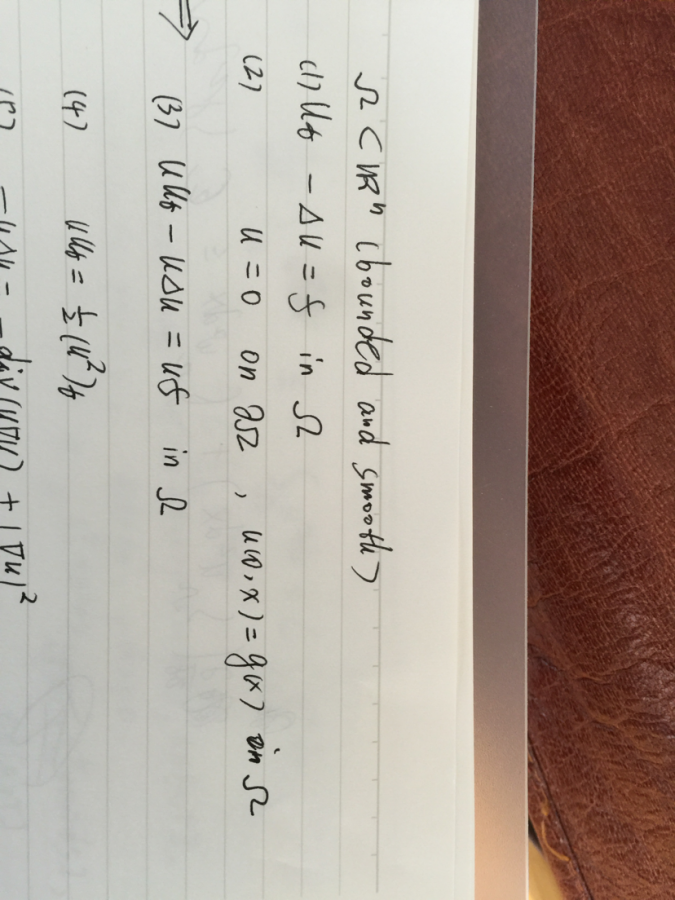 Ω ⊂ ℝⁿ (bounded and smooth)
(1) uₜ − Δu = f in Ω
(2) u = 0 on ∂Ω , u(0,x) = g(x) in Ω
⇒ (3) uuₜ − uΔu = uf in Ω
(4) uuₜ = ½(u²)ₜ
(5) −uΔu = −div(u∇u) + |∇u|²